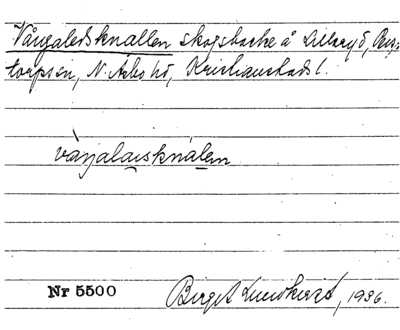 Vångaledsknallen skogsbacke å Lillaryd,
torps sn, N. Åsbo hd, Kristianstads l.
vàŋalaısknálen
Nr 5500 Birgit Lundkvist, 1936.